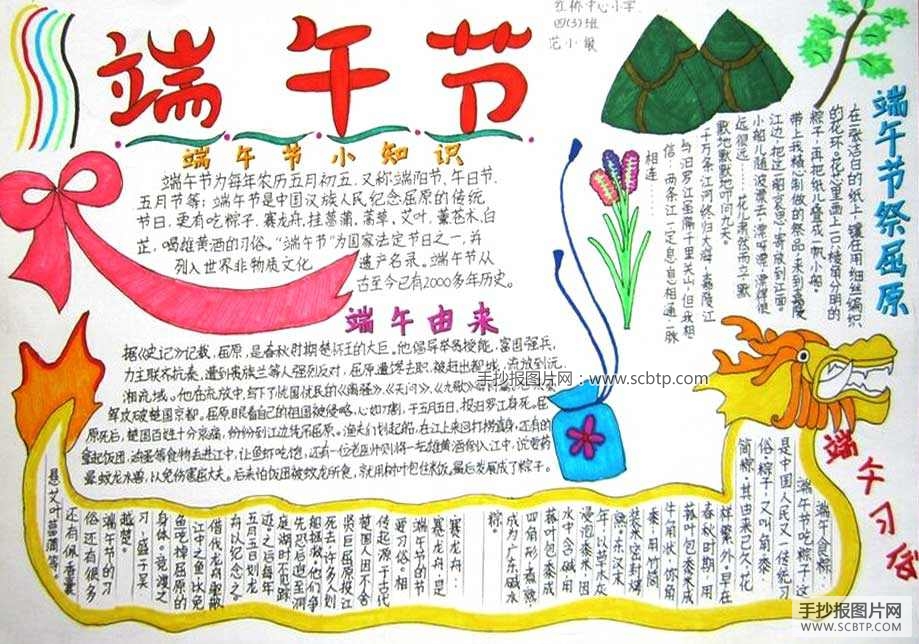 红桥中心小学
四(3)班
范小敏
端午节
端午节小知识
端午节为每年农历五月初五,又称端阳节,午日节,
五月节等;端午节是中国汉族人民纪念屈原的传统
节日,更有吃粽子,赛龙舟,挂菖蒲,蒿草,艾叶,薰苍术,白
芷,喝雄黄酒的习俗。“端午节”为国家法定节日之一,并
列入世界非物质文化遗产名录。端午节从
古至今已有2000多年历史。
端午由来
据《史记》记载,屈原,是春秋时期楚怀王的大臣。他倡导举贤授能,富国强兵,
力主联齐抗秦,遭到贵族兰等人强烈反对,屈原遭馋去职,被赶出都城,流放到沅
湘流域。他在流放中,写下了忧国忧民的《离骚》《天问》《九歌》
军攻破楚国京都。屈原眼看自己的祖国被侵略,心如刀割,于五月五日,投汨罗江身死。屈
原死后,楚国百姓十分哀痛,纷纷到江边凭吊屈原。渔夫们划起船,在江上来回打捞真身,还有的
拿起饭团、鸡蛋等食物丢进江中,让鱼虾吃饱,还有一位老医师则将一坛雄黄酒倒入江中,说要药
晕蛟龙水兽,以免伤害屈大夫。后来怕饭团被蛟龙所食,就用树叶包住米饭,最后发展成了粽子。
端午节祭屈原
在一张洁白的纸上,镶在用细丝编织
的花环,花心里画上一只棱角分明的
粽子,再把纸儿叠成一帆小船,
带上我精心制做的祭品,来到嘉陵
江边,把这船哀思,寄放到江面。
小船儿随波漂去,漂呀漂,漂得很
远很远……花儿肃然而立,默
默地默默地叩问苍天。
千万条江河终归大海,嘉陵江
与汨罗江虽隔千里关山,但我相
信,两条江一定息息相通,一脉
相连……
端午习俗
端午食粽:
端午节吃粽子,这
是中国人民又一传统习
俗。粽子,又叫“角黍”、
“筒粽”。其由来已久,花
样繁外。早在
春秋时期,用
菰叶包黍米成
牛角状,称“角
黍”,用竹筒
装米密封烤
熟。东汉末
年,以草木灰
浸泡黍米,因
水中含碱,用
菰叶包黍米成
四角形,煮熟,
成为广东碱水
粽。
赛龙舟:
赛龙舟,是
端午节的节
要习俗。相
传起源于古代
楚国人因不舍
贤臣屈原投江
死去,许多人划
船追赶拯救。他们争
先恐后,追至洞
庭湖时不见踪
迹。之后每年
五月五日划龙
舟以纪念之。
借划龙舟驱散
江中之鱼,以免
鱼吃掉屈原的
身体。竞渡之
习,盛于吴
越楚。
端午节的习
俗还有很多
还有佩香囊
悬艾叶菖蒲等。
手抄报图片网:www.scbtp.com
手抄报图片网
WWW.SCBTP.COM